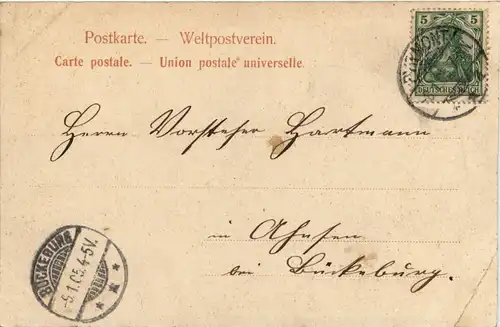 Postkarte. — Weltpostverein.
Carte postale. — Union postale universelle.
5 5
DEUTSCHES REICH
PYRMONT
Herrn Vorsteher Hartmann
in Ahnsen
bei Bückeburg.
BÜCKEBURG
-9.1.05.4-5V.